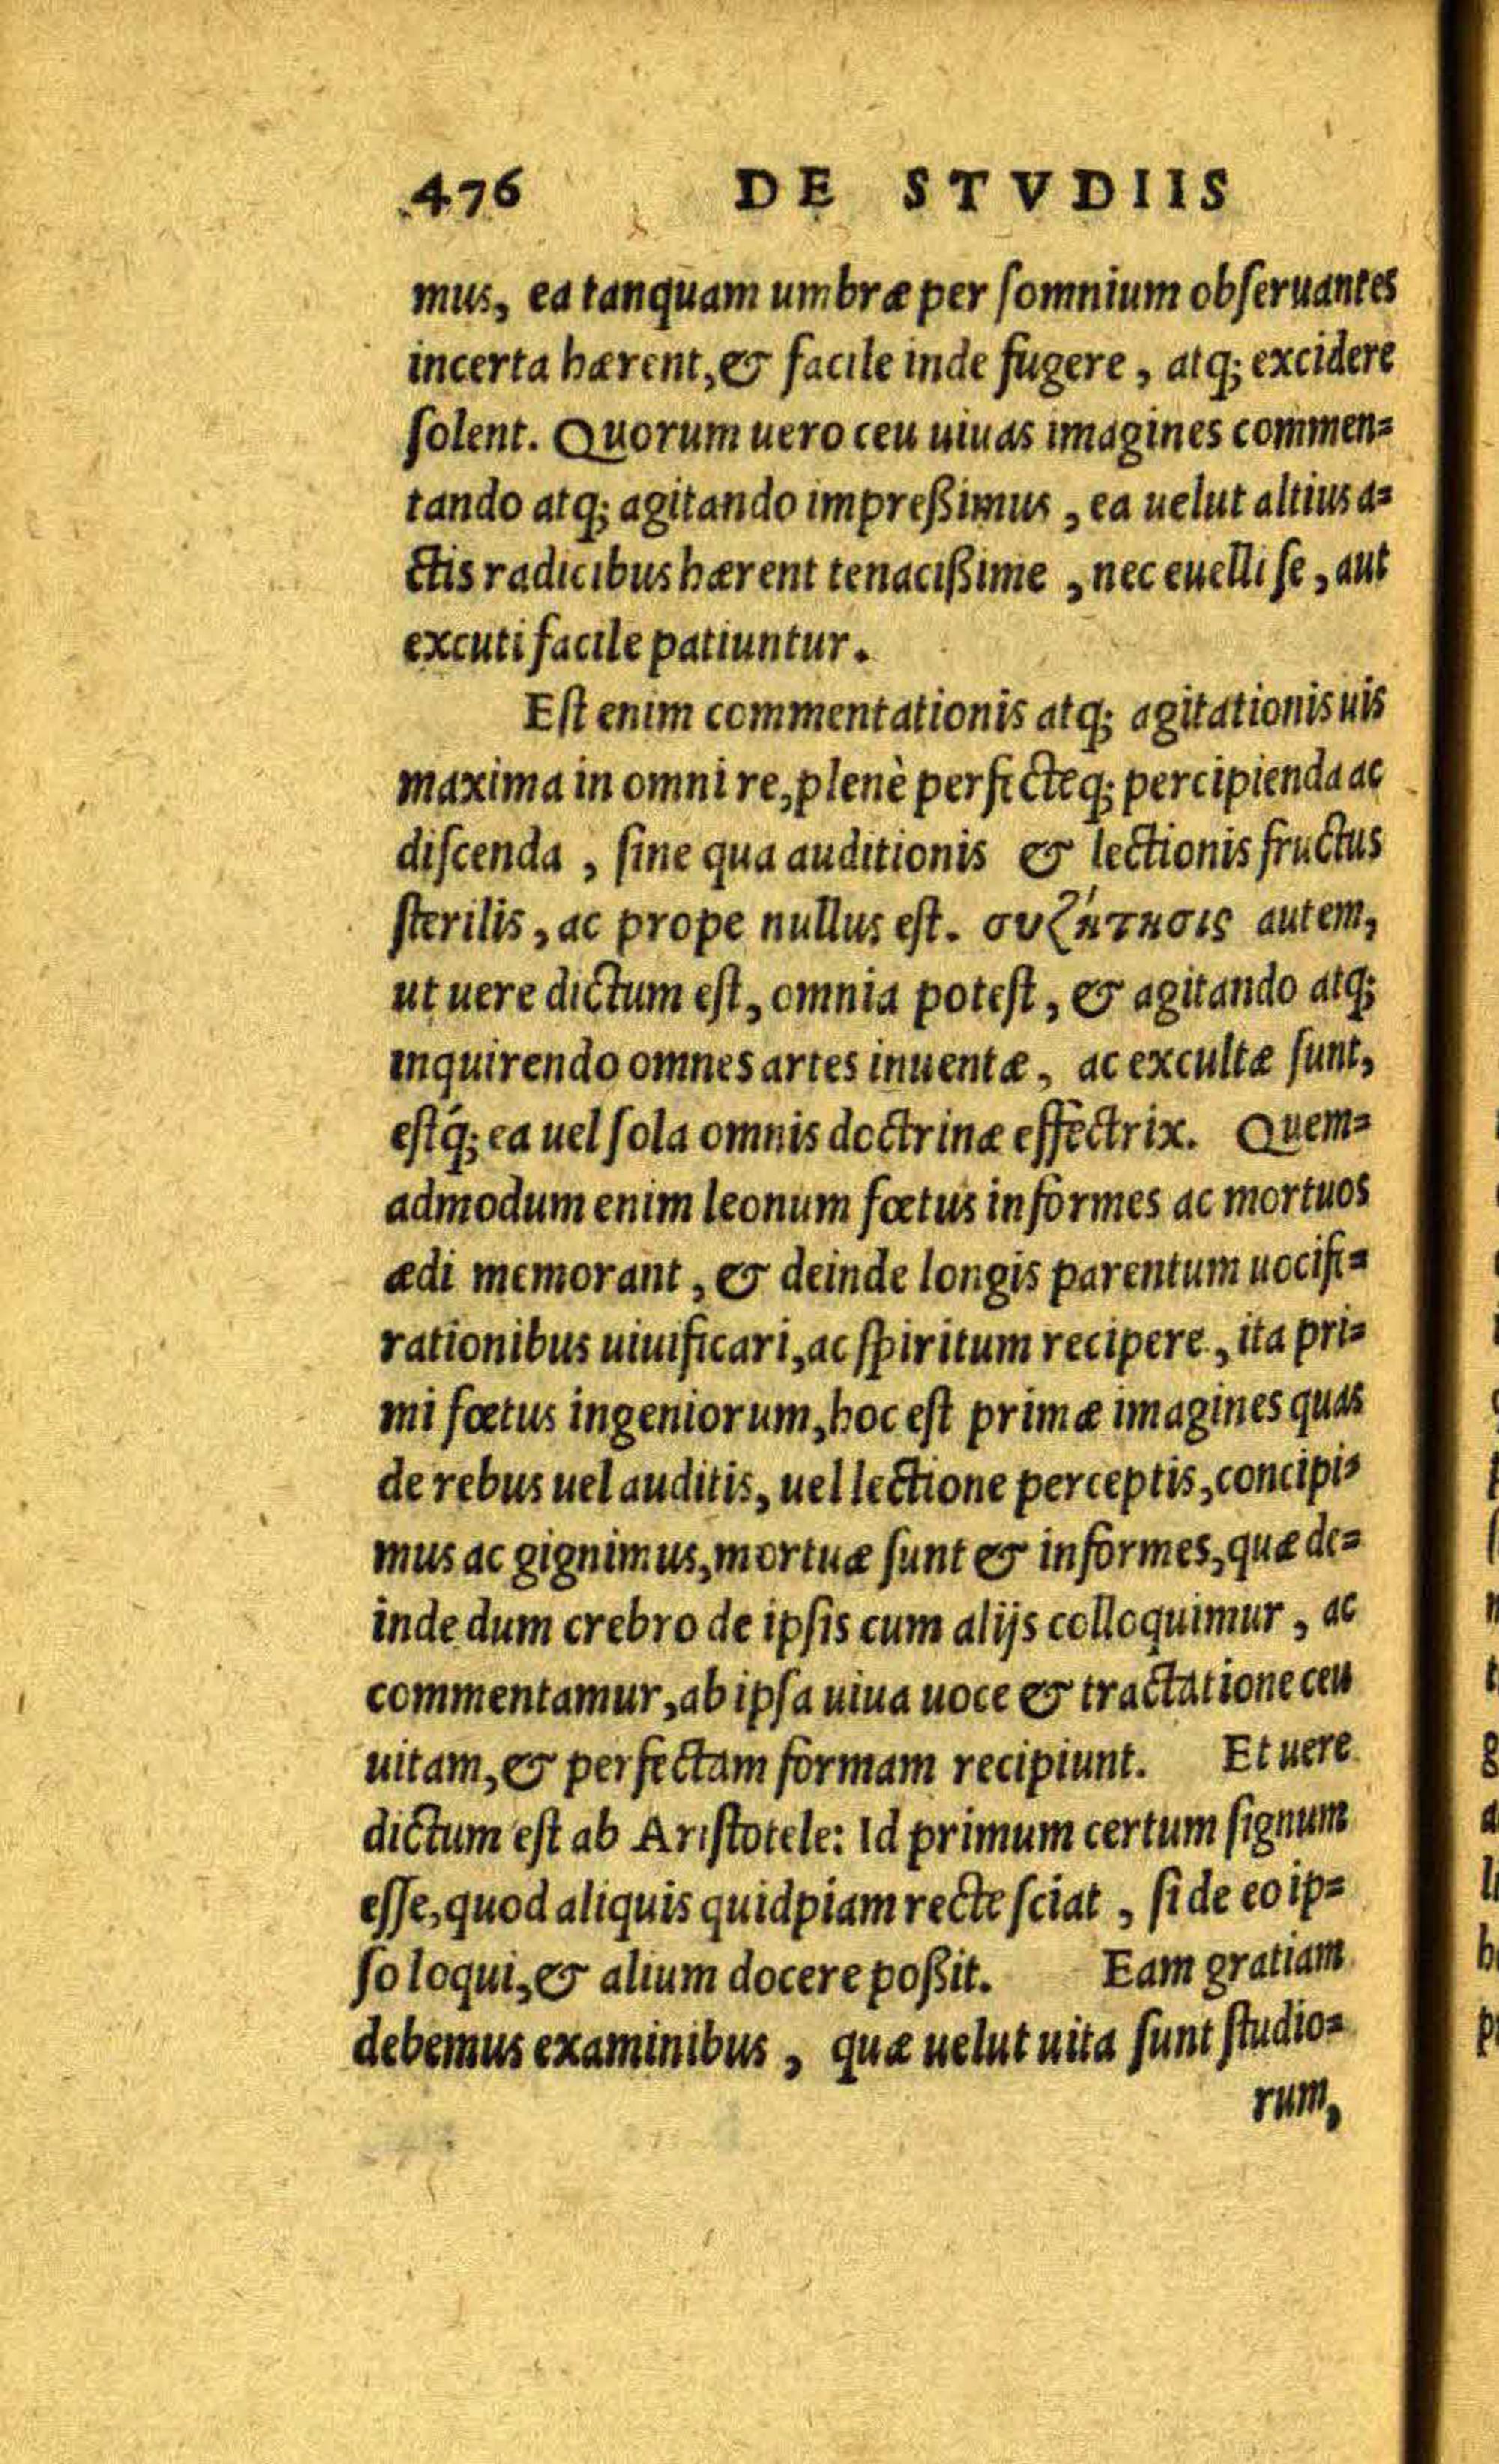 476 DE STVDIIS
mus, ea tanquam umbræ per ſomnium obſeruantes
incerta hærent, & facile inde fugere, atq; excidere
ſolent. Quorum uero ceu uiuas imagines commen=
tando atq; agitando impreßimus, ea uelut altius a=
ctis radicibus hærent tenacißime, nec euelli ſe, aut
excuti facile patiuntur.
Eſt enim commentationis atq; agitationis uis
maxima in omni re, plenè perfecteq; percipienda ac
diſcenda, ſine qua auditionis & lectionis fructus
ſterilis, ac prope nullus eſt. συζήτησις autem,
ut uere dictum eſt, omnia poteſt, & agitando atq;
inquirendo omnes artes inuentæ, ac excultæ ſunt,
eſtq́; ea uel ſola omnis doctrinæ effectrix. Quem=
admodum enim leonum fœtus informes ac mortuos
ædi memorant, & deinde longis parentum uocife=
rationibus uiuificari, ac ſpiritum recipere, ita pri=
mi fœtus ingeniorum, hoc eſt primæ imagines quas
de rebus uel auditis, uel lectione perceptis, concipi=
mus ac gignimus, mortuæ ſunt & informes, quæ de=
inde dum crebro de ipſis cum alijs colloquimur, ac
commentamur, ab ipſa uiua uoce & tractatione ceu
uitam, & perfectam formam recipiunt. Et uere
dictum eſt ab Ariſtotele: Id primum certum ſignum
eſſe, quod aliquis quidpiam recte ſciat, ſi de eo ip=
ſo loqui, & alium docere poßit. Eam gratiam
debemus examinibus, quæ uelut uita ſunt ſtudio=
rum,